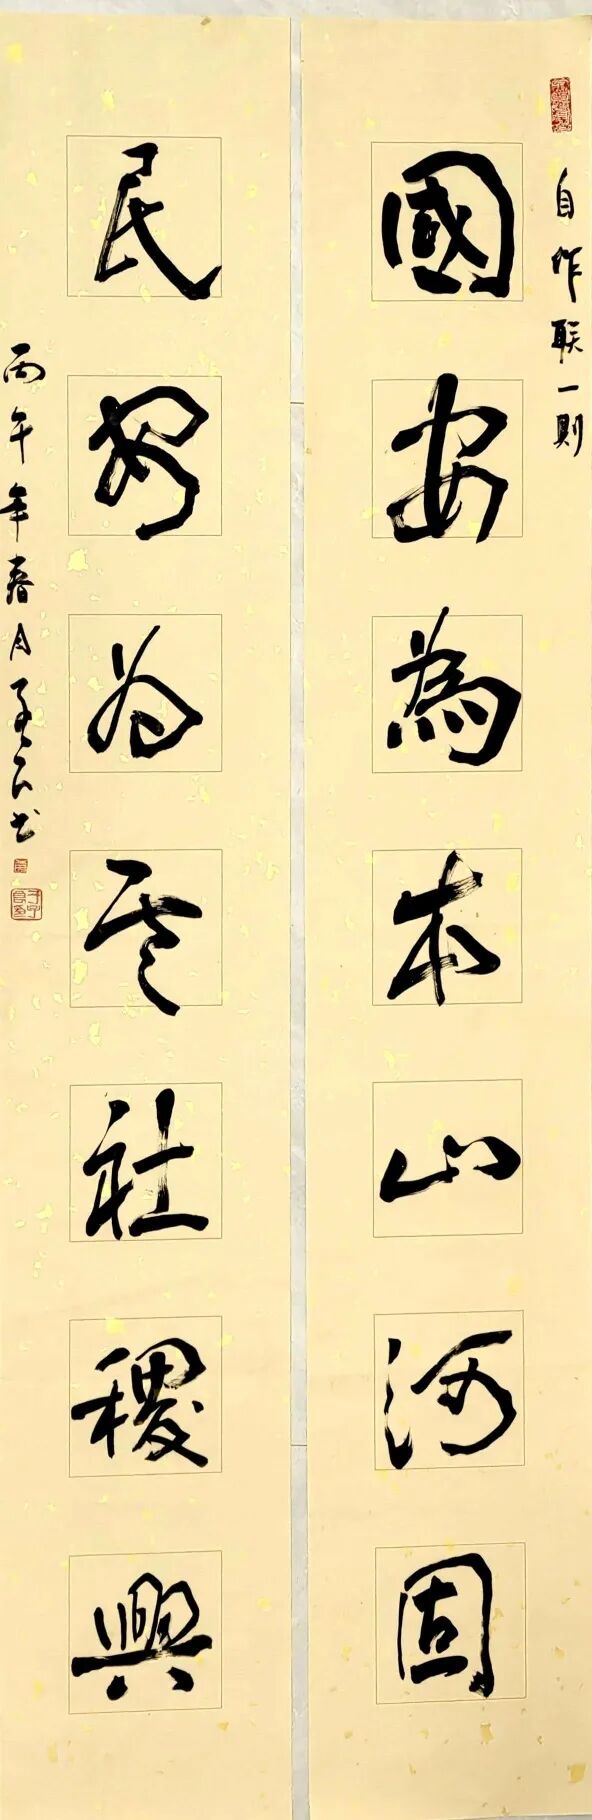 自作联一則
國安為本山河固
民为社稷興
丙午年春月书